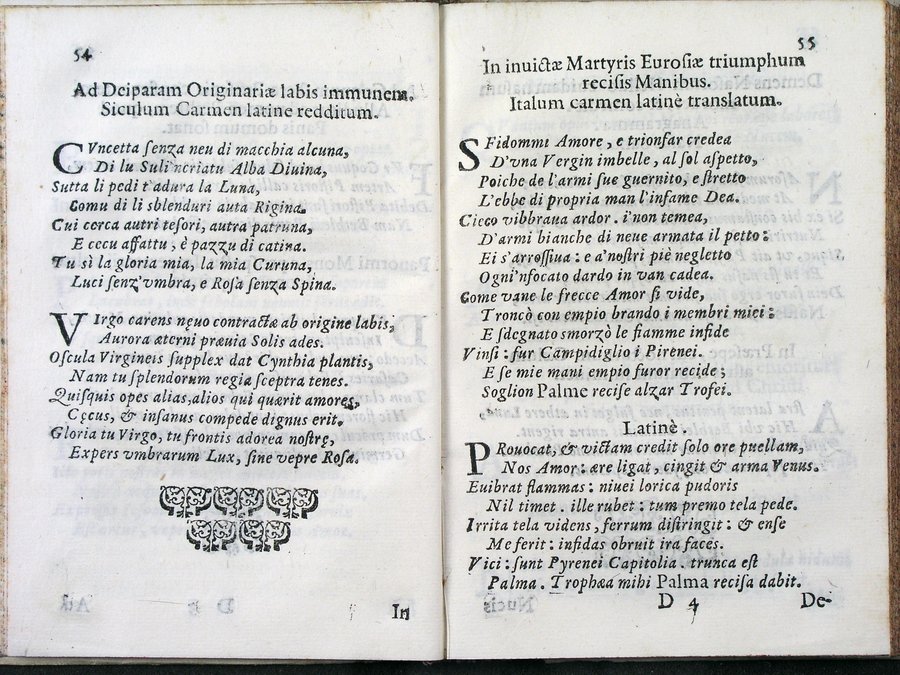 54
Ad Deiparam Originariæ labis immunem.
Siculum Carmen latine redditum.
CVncetta ſenza neu di macchia alcuna,
Di lu Suli'ncriatu Alba Diuina,
Sutta li pedi t'adura la Luna,
Comu di li sblenduri auta Rigina.
Cui cerca autri teſori, autra patruna,
E cecu affattu, è pazzu di catina.
Tu sì la gloria mia, la mia Curuna,
Luci ſenz'vmbra, e Roſa ſenza Spina.
VIrgo carens nęuo contractæ ab origine labis,
Aurora æterni præuia Solis ades.
Oſcula Virgineis ſupplex dat Cynthia plantis,
Nam tu ſplendorum regia ſceptra tenes.
Quiſquis opes alias, alios qui quærit amores,
Cęcus, & inſanus compede dignus erit.
Gloria tu Virgo, tu frontis adorea noſtrę,
Expers vmbrarum Lux, ſine vepre Roſa.
In
55
In inuictæ Martyris Euroſiæ triumphum
reciſis Manibus.
Italum carmen latinè tranſlatum.
SFidommi Amore, e trionfar credea
D'vna Vergin imbelle, al ſol aſpetto,
Poiche de l'armi ſue guernito, e ſtretto
L'ebbe di propria man l'infame Dea.
Cieco vibbraua ardor. i'non temea,
D'armi bianche di neue armata il petto:
Ei s'arroſſiua: e a'noſtri piè negletto
Ogni'nfocato dardo in van cadea.
Come vane le frecce Amor ſi vide,
Troncò con empio brando i membri miei:
E ſdegnato smorzò le fiamme infide
Vinſi: fur Campidiglio i Pirenei.
E ſe mie mani empio furor recide;
Soglion Palme reciſe alzar Trofei.
Latinè.
PRouocat, & victam credit ſolo ore puellam,
Nos Amor: ære ligat, cingit & arma Venus.
Euibrat flammas: niuei lorica pudoris
Nil timet. ille rubet: tum premo tela pede.
Irrita tela videns, ferrum diſtringit: & enſe
Me ferit: infidas obruit ira faces.
Vici: ſunt Pyrenei Capitolia. trunca eſt
Palma. Trophæa mihi Palma reciſa dabit.
D 4 De-